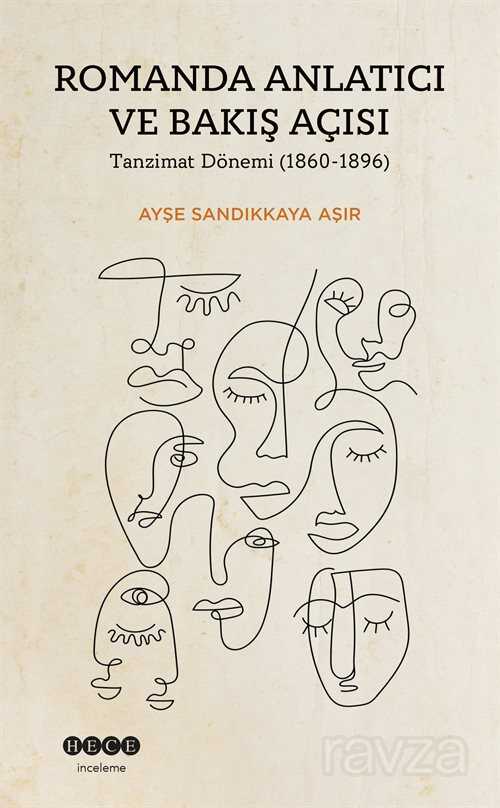 ROMANDA ANLATICI
VE BAKIŞ AÇISI
Tanzimat Dönemi (1860-1896)
AYŞE SANDIKKAYA AŞIR
HECE
inceleme
ravza
kitap